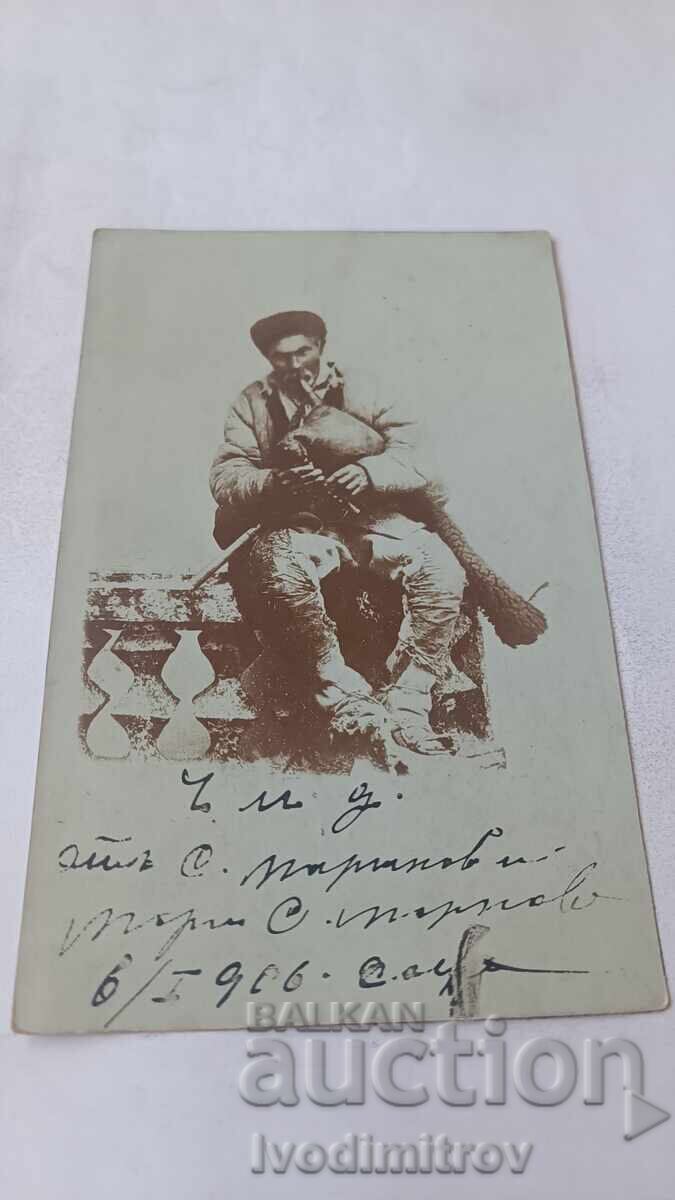 Ч М Д.
отъ С. Маринов и
Мари С. Маринов
6/I 906.
BALKAN
auction
Ivodimitrov